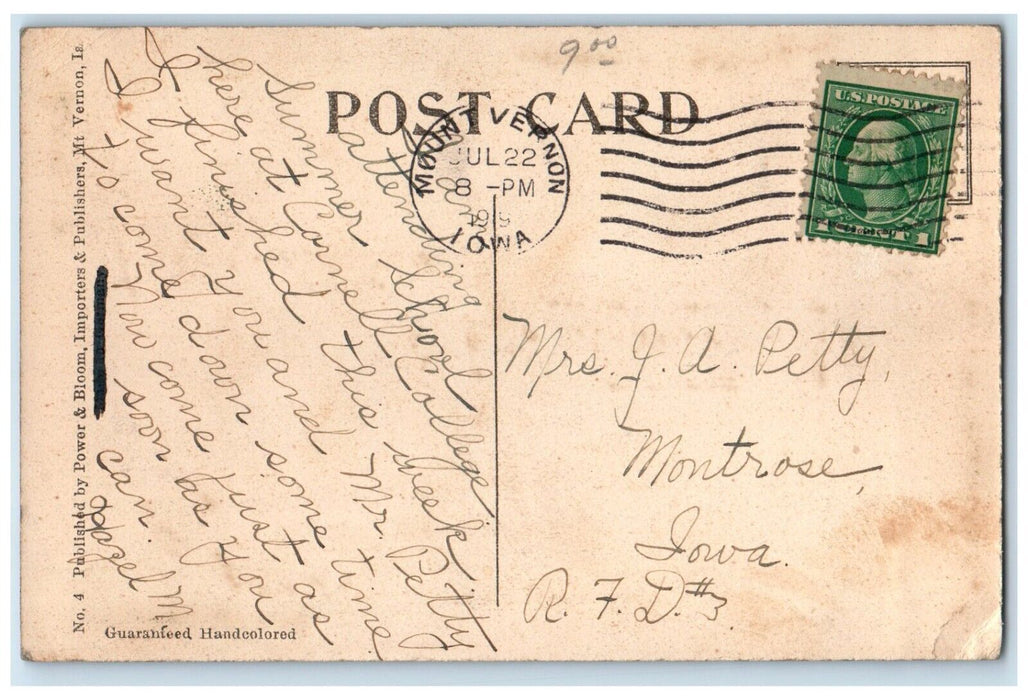 9.00
POST CARD
MOUNT VERNON
JUL 22
8 -PM
IOWA
U.S. POSTAGE
1 CENT 1
Am
attending
Summer School
here at Cornell College.
I finished this week
I want you and Mr. Petty
to come down some time
Now come just as
soon as you
can.
Hazel M
Mrs. J. A. Petty,
Montrose,
Iowa.
R. F. D. #3.
No. 4 Published by Power & Bloom, Importers & Publishers, Mt Vernon, Ia
Guaranteed Handcolored